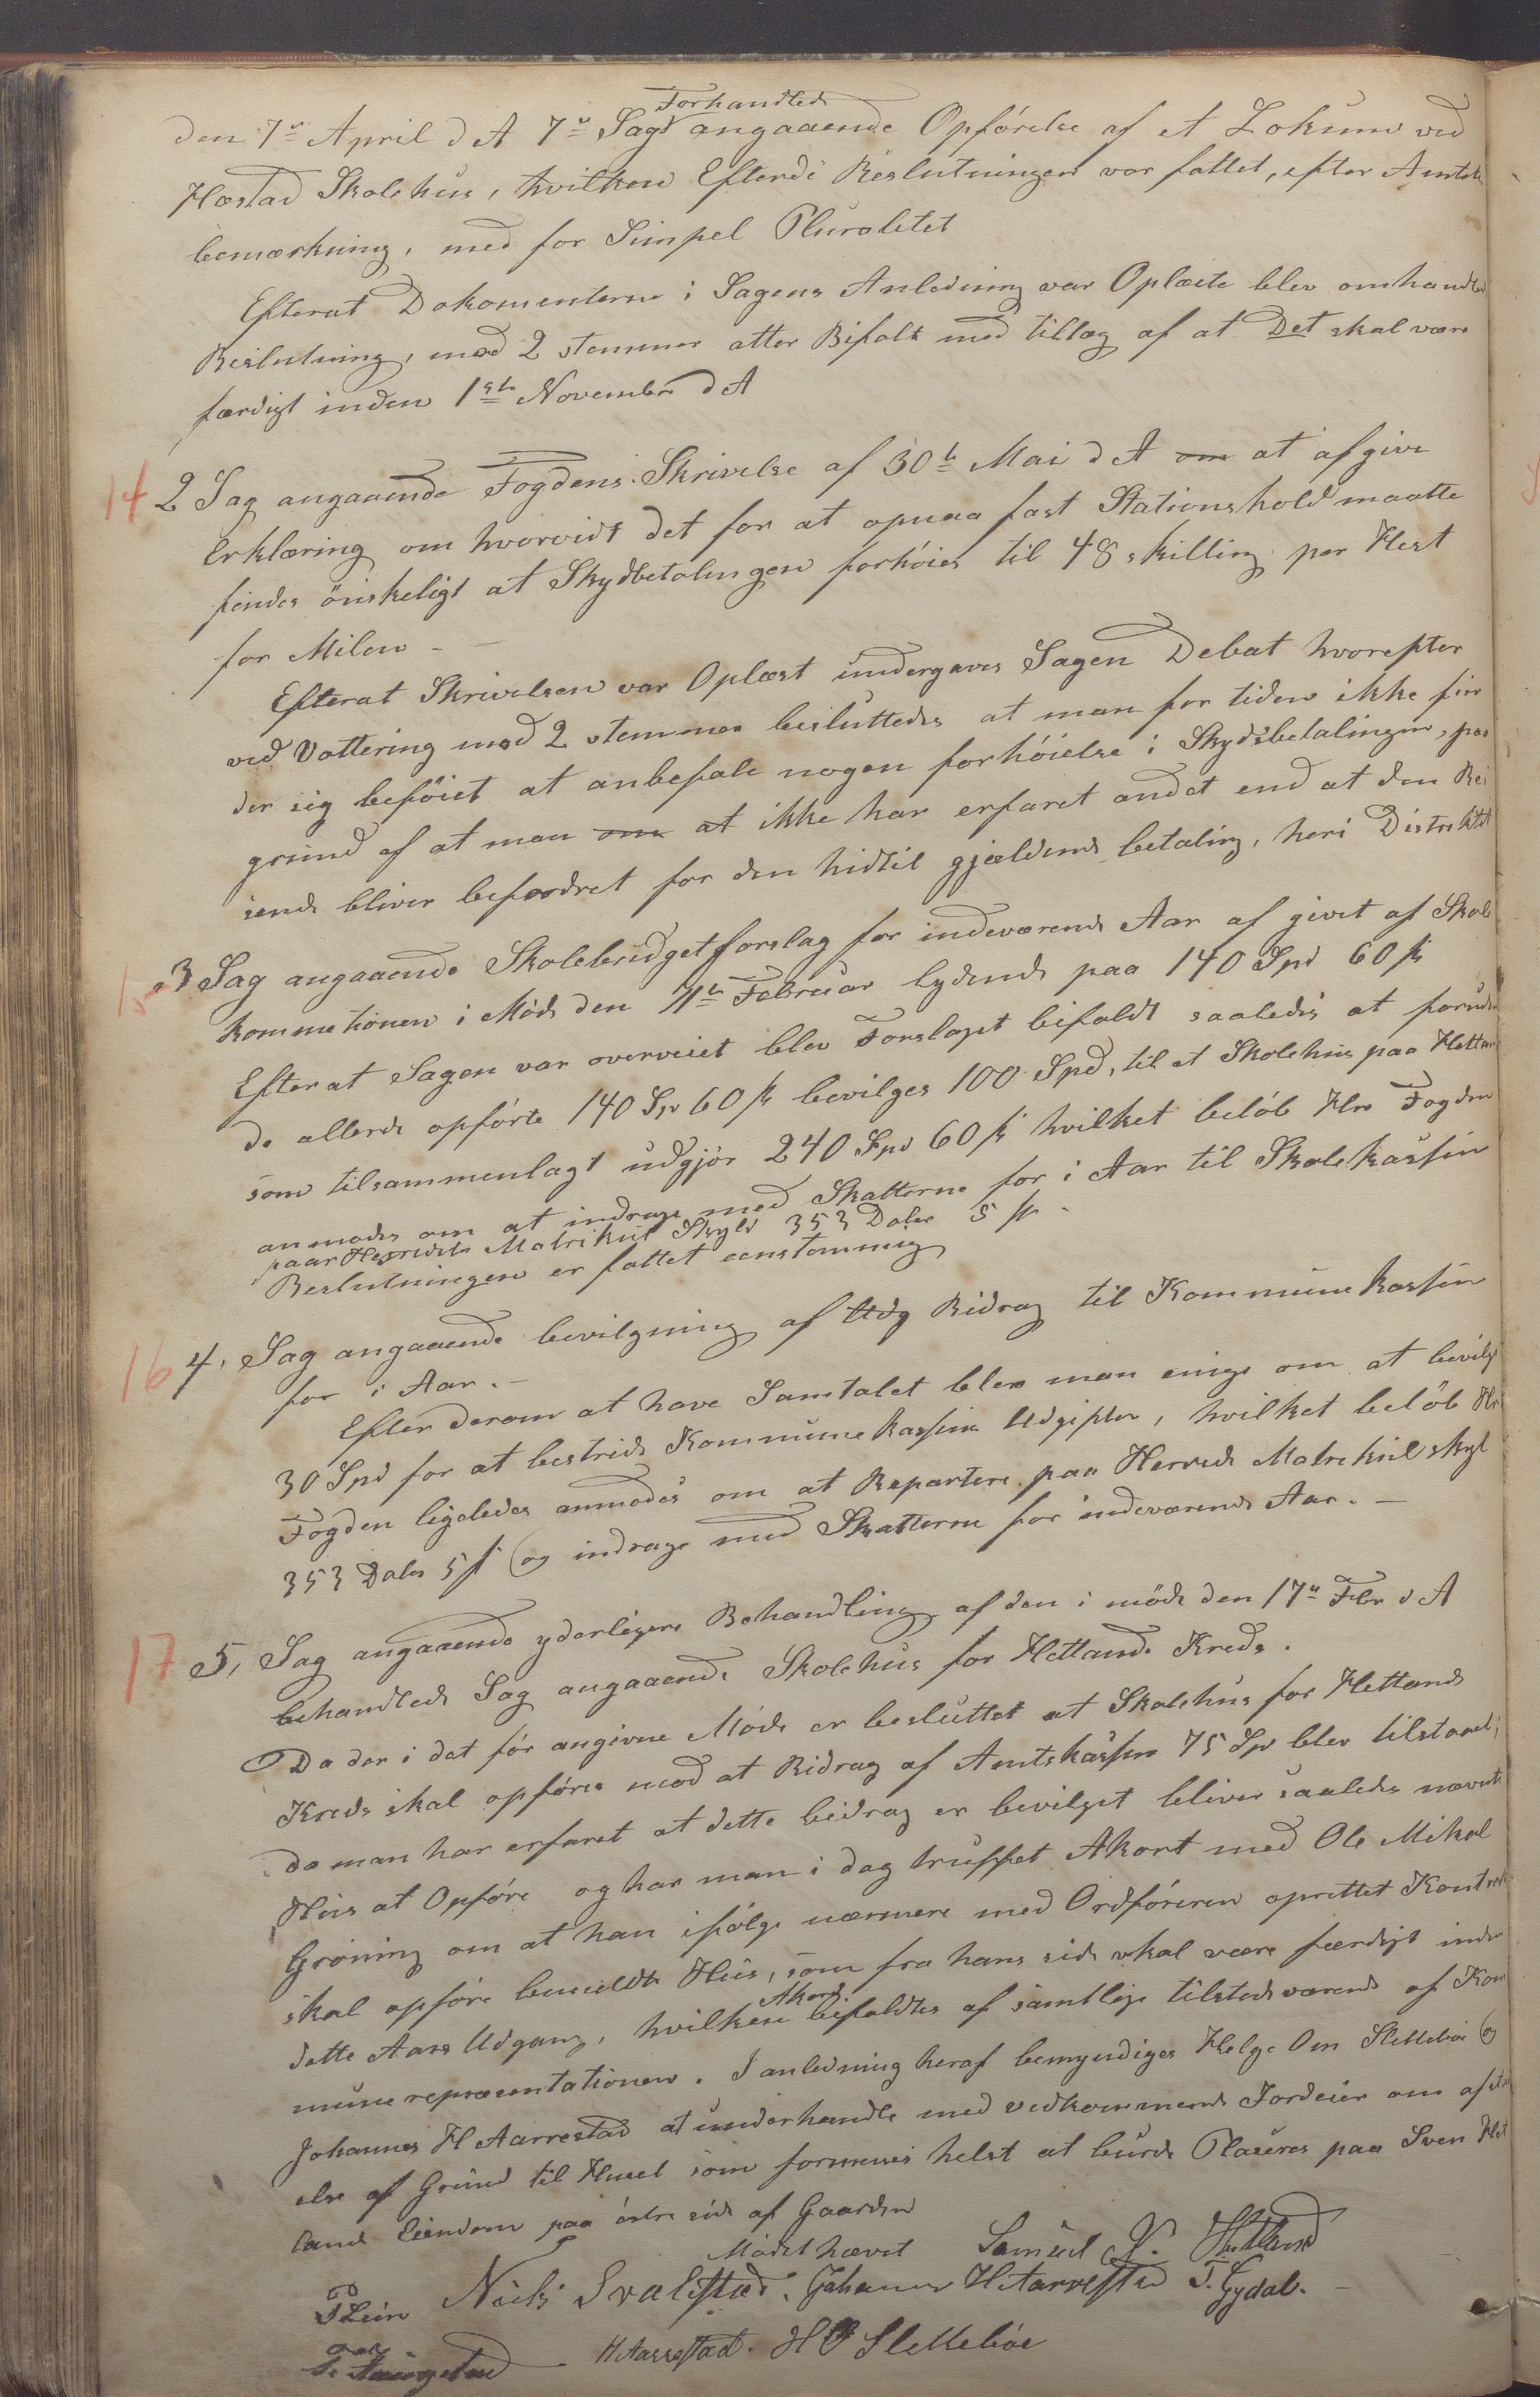 Forhandlede
den 7de April d A 7de Sag angaaende Opførelse af et Lokum ved
Hæstad Skolehus, hvilken Efterdi Beslutningen var fattet, efter Amtets
bemærkning, med for Simpel Pluralitet
Efterat Dokomenterne i Sagens Anledning var Oplæste blev omhandlede
Beslutning, med 2 stemmer atter Bifalt med tillæg af at Det skal være
færdigt inden 1ste November d A
14 2 Sag angaaende Fogdens Skrivelse af 30te Mai d A om at afgive
Erklæring om hvorvidt det for at opnaa fast Stationshold maatte
findes önskeligt at Skydbetalingen forhöies til 48 skilling per Hest
for Milen -
Efterat Skrivelsen var Oplæst undergaves Sagen Debat hvorefter
ved Vottering med 2 stemmer besluttedes at man for tiden ikke fin
der sig beföiet at anbefale nogen forhöielse i Skydsbetalingen, paa
grund af at man om at ikke har erfaret andet end at den Rei
sende bliver befordret for den hidtil gjældende betaling, heri Distriktet
15 3 Sag angaaende Skolebudgetforslag for indeværende Aar af givet af Skole
kommetionen i Møde den 7de Februar lydende paa 140 Spd 60 sk
Efterat Sagen var overveiet blev Forslaget bifaldt saaledes at foruden
de allerede opførte 140 Sp 60 sk bevilges 100 Spd, til et Skolehus paa Hetland
som tilsammenlagt udgjør 240 Spd 60 sk hvilket beløb Hrr Fogden
anmodes om at inddrage med Skatterne for i Aar til Skolekassen
paa Herredets Matrikul Skyld 353 Daler 5 sk -
Beslutningen er fattet eenstemmig
16 4, Sag angaaende bevilgning af Udg Bidrag til Kommunekassen
for i Aar. -
Efter derom at have Samtalet blev man enige om at bevilge
30 Spd for at bestride Kommunekassens Udgifter, hvilket belöb Hr
Fogden ligeledes anmodes om at Repartere paa Herreds Matrekulskyl
353 Daler 5 sk og inddrage med Skatterne for indeværende Aar. -
17 5, Sag angaaende yderligere Behandling af den i møde den 17de Febr d A
behandlede Sag angaaende Skolehus for Hetlands Kreds.
Da der i det før angivne Møde er besluttet at Skolehus for Hetlands
Kreds skal opføres mod at Bidrag af Amtskassen 75 Sp blev tilstaaet,
da man har erfaret at dette bidrag er bevilget bliver saaledes nævnte
Hus at Opføre og har man i dag truffet Akort med Ole Mikal
Grøning om at han ifølge nærmere med Ordføreren oprettet Kontrakt
skal opføre bemeldte Hus, som fra hans side skal være færdigt inden
Akord
dette Aars Udgang, hvilken bifaldtes af samtlige tilstedeværende af Kom
munerepræsentationen. I anledning heraf bemyndiges Helge Oen Slettebø og
Johannes H Aarrestad at underhandle med vedkommende Jordeier om afstaa
else af Grund til Huset som formenes helst at burde Plaseres paa Sven Het
lands Eiendom paa østre side af Gaarden
Mødet hævet Samuel N. Hetland
P Lein Niels Svalestad. Johannes H Aarrestad T. Gydal. -
H Aarrestad. H O Slettebøe